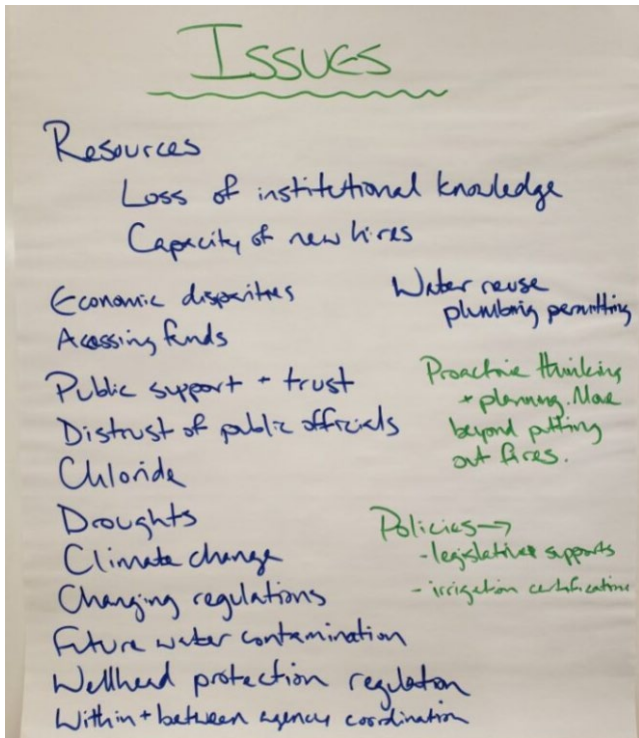 Issues
Resources
Loss of institutional knowledge
Capacity of new hires
Economic disparities
Accessing funds
Public support + trust
Distrust of public officials
Chloride
Droughts
Climate change
Changing regulations
Future water contamination
Wellhead protection regulation
Within + between agency coordination
Water reuse
plumbing permitting
Proactive thinking
+ planning. Move
beyond putting
out fires.
Policies →
- legislative supports
- irrigation certification